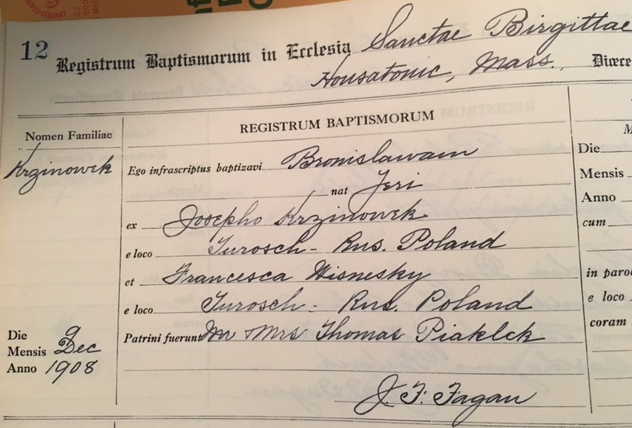 12 Registrum Baptismorum in Ecclesia Sanctae Birgittae
Housatonic, Mass., Dioece
Nomen Familiae
REGISTRUM BAPTISMORUM
Krzinowek
Ego infrascriptus baptizavi Bronislawam
nat Jeri
ex Josepho Krzinowek
e loco Turosch - Rus. Poland
et Francesca Wisnesky
e loco Turosch - Rus. Poland
Patrini fuerunt Mr Mrs Thomas Piaklek
Die 9
Mensis Dec
Anno 1908
J. F. Fagan
Die
Mensis
Anno
cum
in paroc
e loco
coram